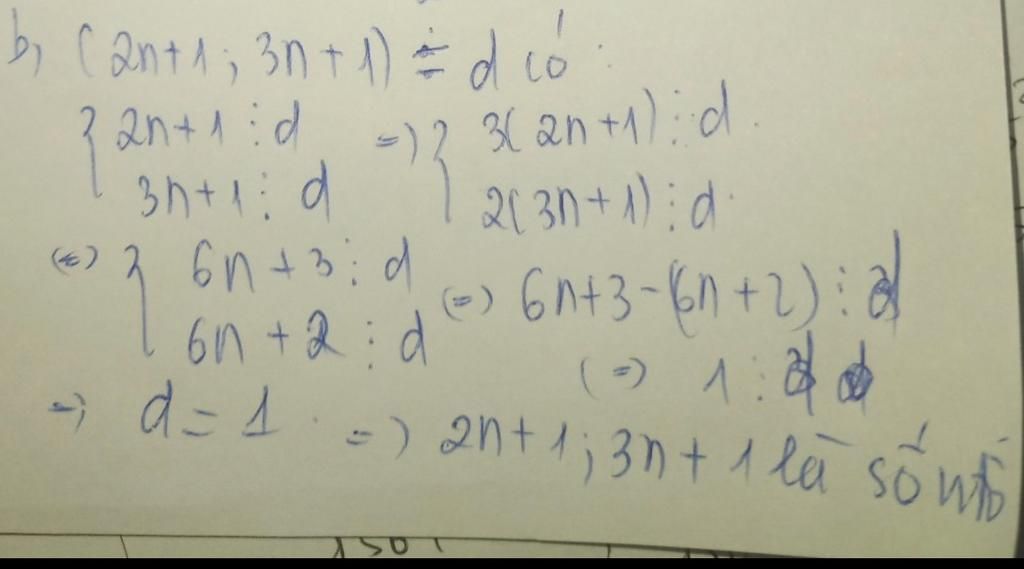 b, (2n+1; 3n+1) = d có:
{ 2n+1 ⋮ d => { 3(2n+1) ⋮ d.
3n+1 ⋮ d 2(3n+1) ⋮ d.
(=) { 6n+3 ⋮ d (=) 6n+3-(6n+2) ⋮ d
6n+2 ⋮ d (=) 1 ⋮ d
=) d = 1. =) 2n+1; 3n+1 là số